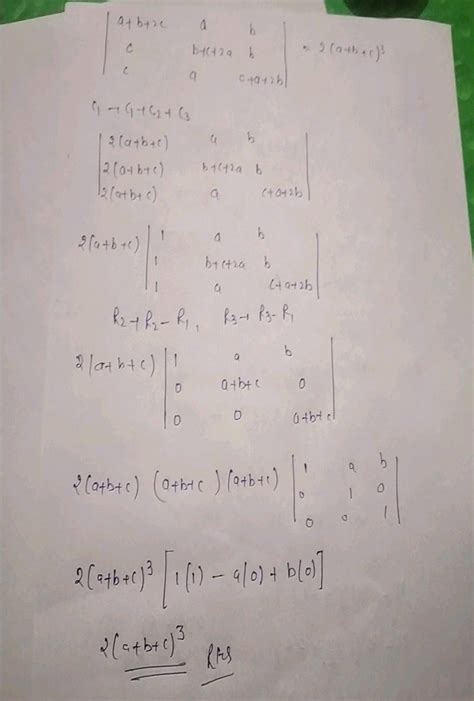 | a+b+2c a b |
| c b+c+2a b | = 2(a+b+c)³
| c a c+a+2b |
C₁ → C₁+C₂+C₃
| 2(a+b+c) a b |
| 2(a+b+c) b+c+2a b |
| 2(a+b+c) a c+a+2b |
2(a+b+c) | 1 a b |
| 1 b+c+2a b |
| 1 a c+a+2b |
R₂→R₂-R₁, R₃→R₃-R₁
2(a+b+c) | 1 a b |
| 0 a+b+c 0 |
| 0 0 a+b+c |
2(a+b+c) (a+b+c) (a+b+c) | 1 a b |
| 0 1 0 |
| 0 0 1 |
2(a+b+c)³ [1(1) - a(0) + b(0)]
2(a+b+c)³ RHS